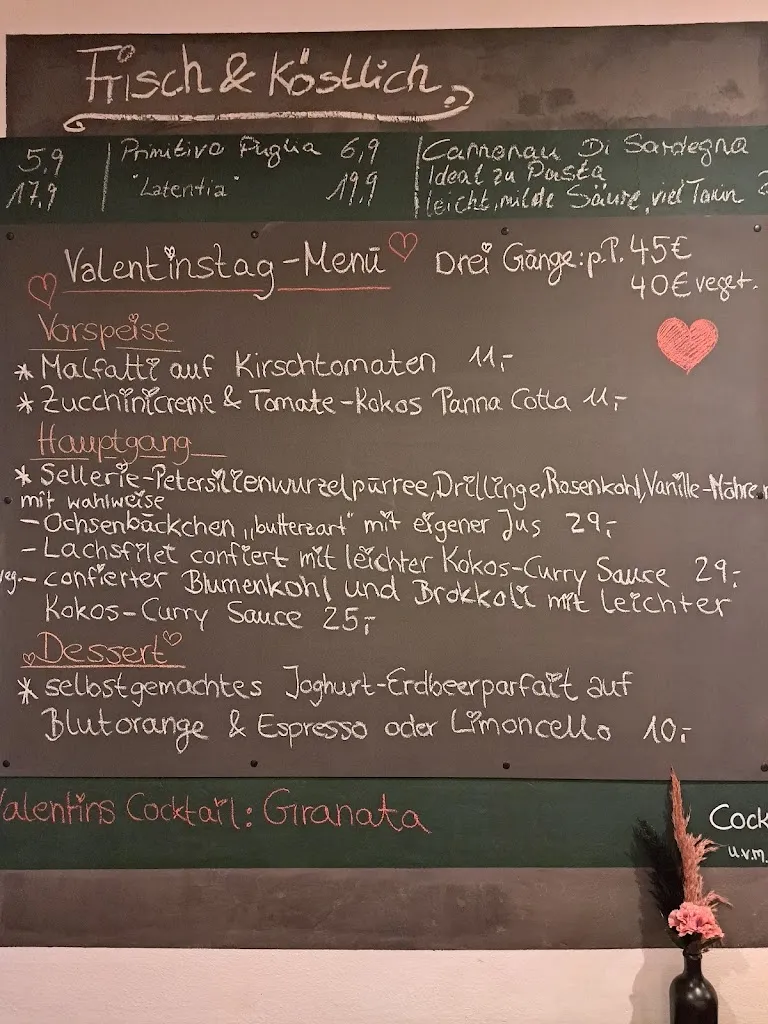 Frisch & Köstlich
5,9 | Primitivo Puglia 6,9 | Cannonau Di Sardegna
17,9 "Latentia" 19,9 Ideal zu Pasta
leicht, milde Säure, viel Tanin
Valentinstag-Menü Drei Gänge: p.P. 45€
40€ veget.
Vorspeise
* Malfatti auf Kirschtomaten 11,-
* Zucchinicreme & Tomate-Kokos Panna Cotta 11,-
Hauptgang
* Sellerie-Petersilienwurzelpürree, Drillinge, Rosenkohl, Vanille-Möhren
mit wahlweise
- Ochsenbäckchen „butterzart" mit eigener Jus 29,-
- Lachsfilet confiert mit leichter Kokos-Curry Sauce 29,-
veg. - confierter Blumenkohl und Brokkoli mit leichter
Kokos-Curry Sauce 25,-
Dessert
* selbstgemachtes Joghurt-Erdbeerparfait auf
Blutorange & Espresso oder Limoncello 10,-
Valentins Cocktail: Granata
Cock
u.v.m.